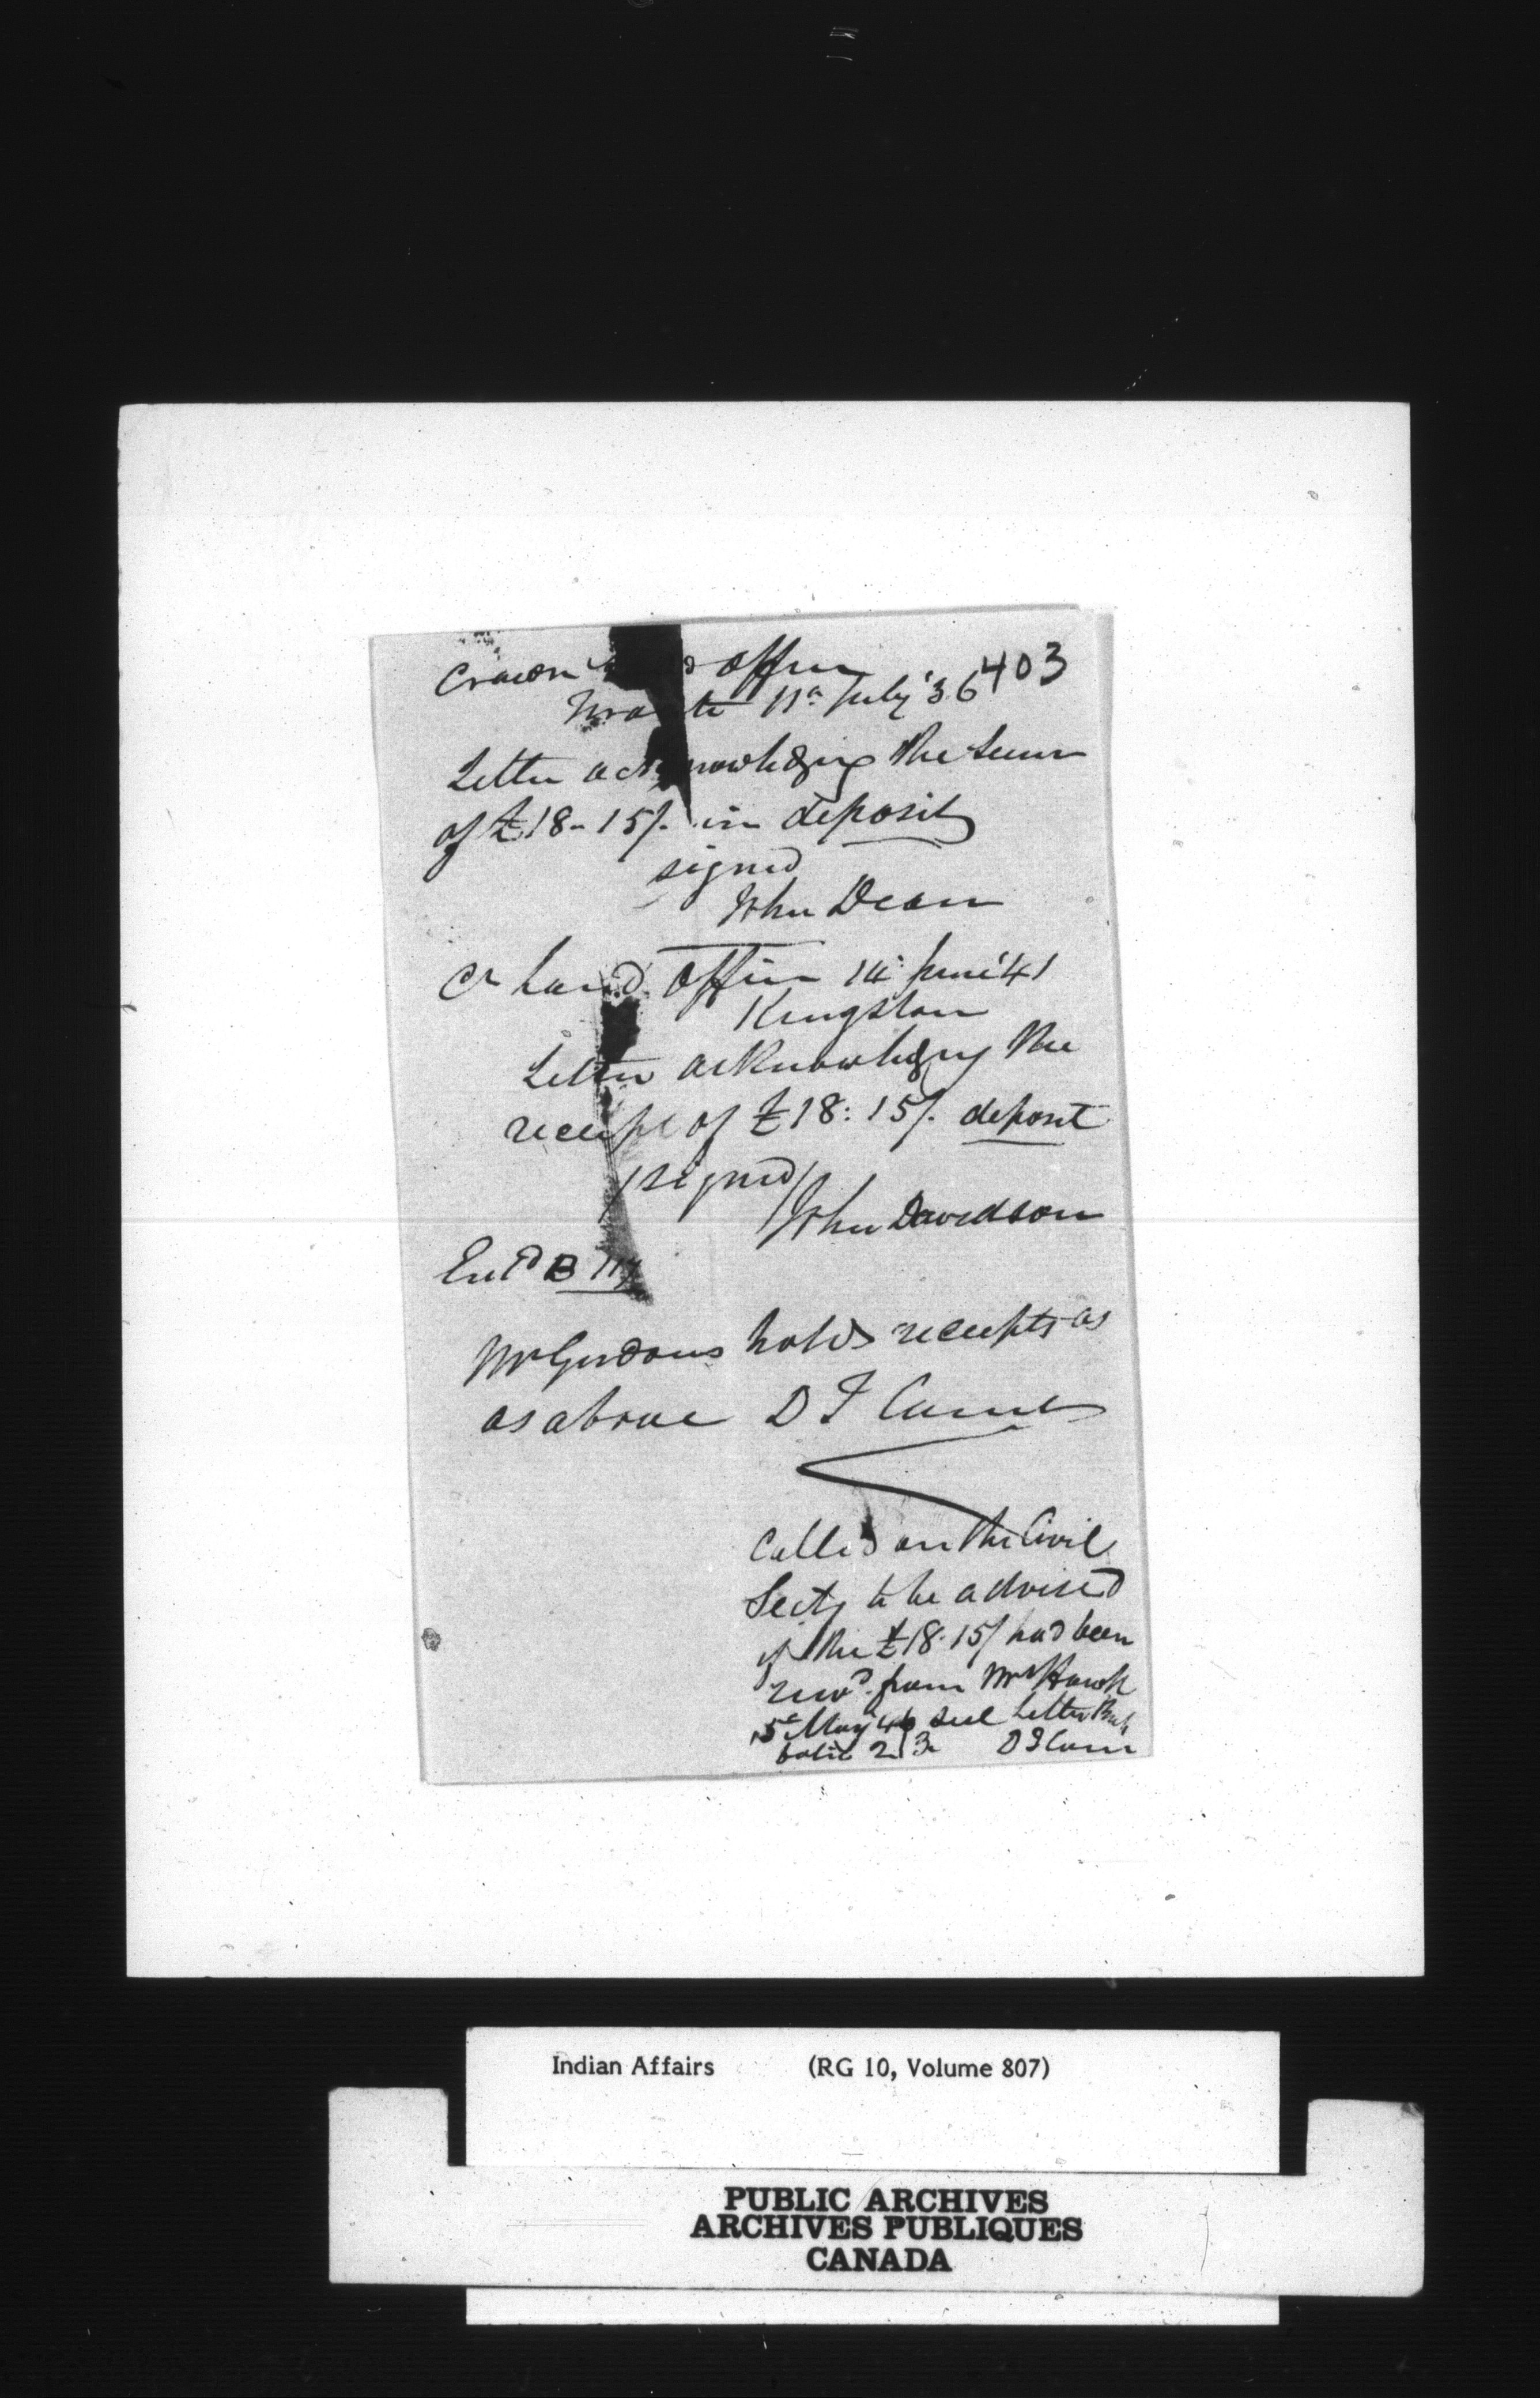 403
Crown Office
11th July '36
Letter acknowledging the Sum
of £18-15/. in deposit
signed
John Dean
Cr Land Office 14 June '41
Kingston
Letter acknowledging the
receipt of £18:15/. deposit
/signed/
John Davidson
Entd B 117
Mr holds receipts as
as above D F
Called on the Civil
Secty to be advised
if the £18.15/ had been
recvd from Mr Hawk
5t May 46 see Letter Book
folio 213
Indian Affairs (RG 10, Volume 807)
PUBLIC ARCHIVES
ARCHIVES PUBLIQUES
CANADA